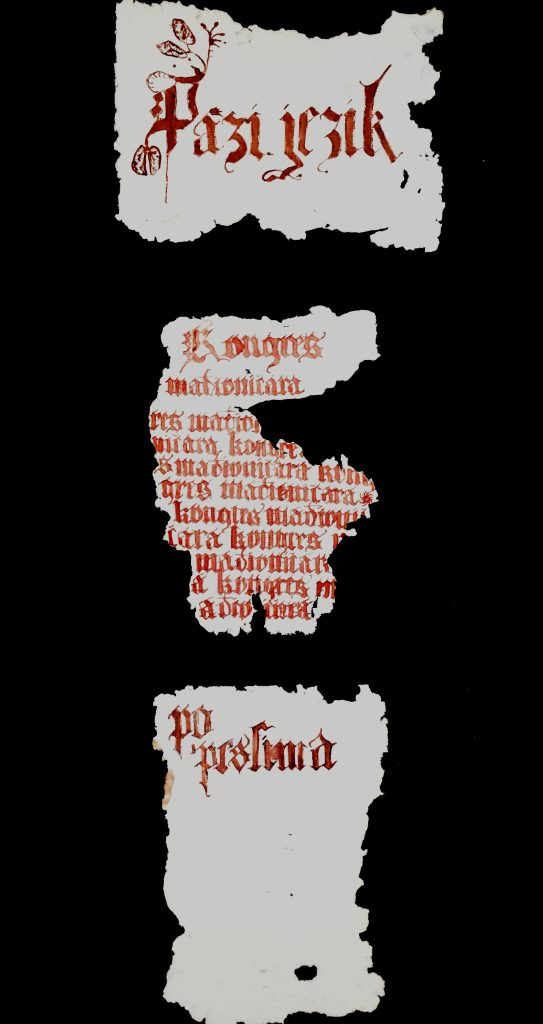 Pazi jezik
Kongres
madionicara
res madio
nicara kongre
s madionicara kon
gres madionicara
kongres madioni
cara kongres
madionicar
a kongres m
adionicara
po
pesſima